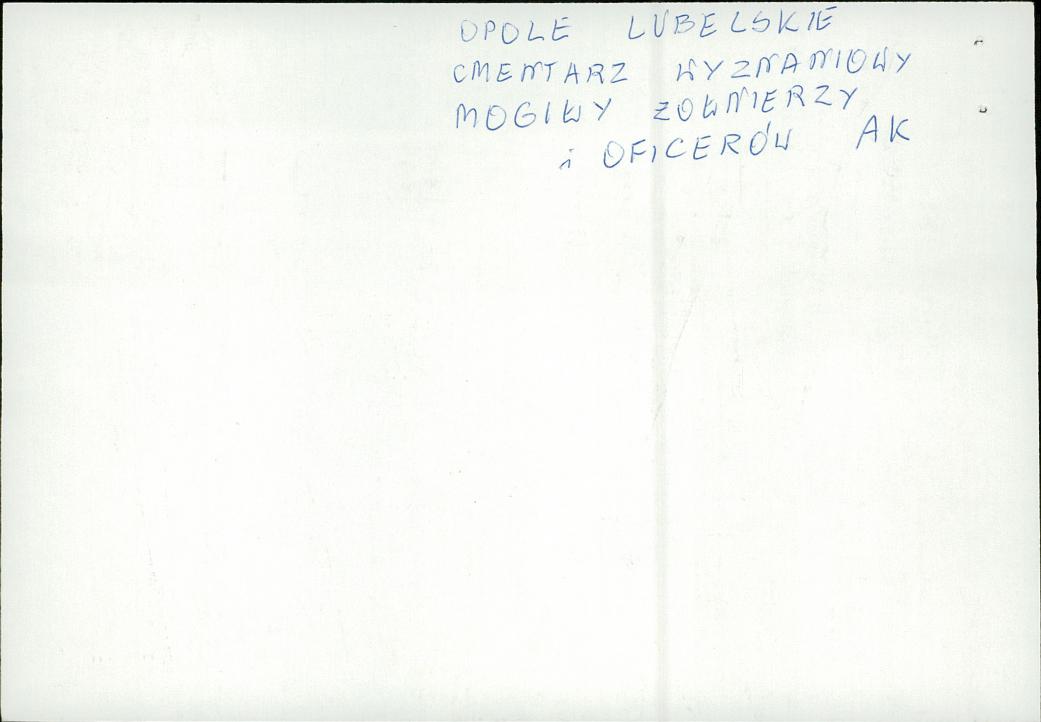 OPOLE LUBELSKIE
CMENTARZ WYZNANIOWY
MOGIŁY ŻOŁNIERZY
i OFICERÓW AK